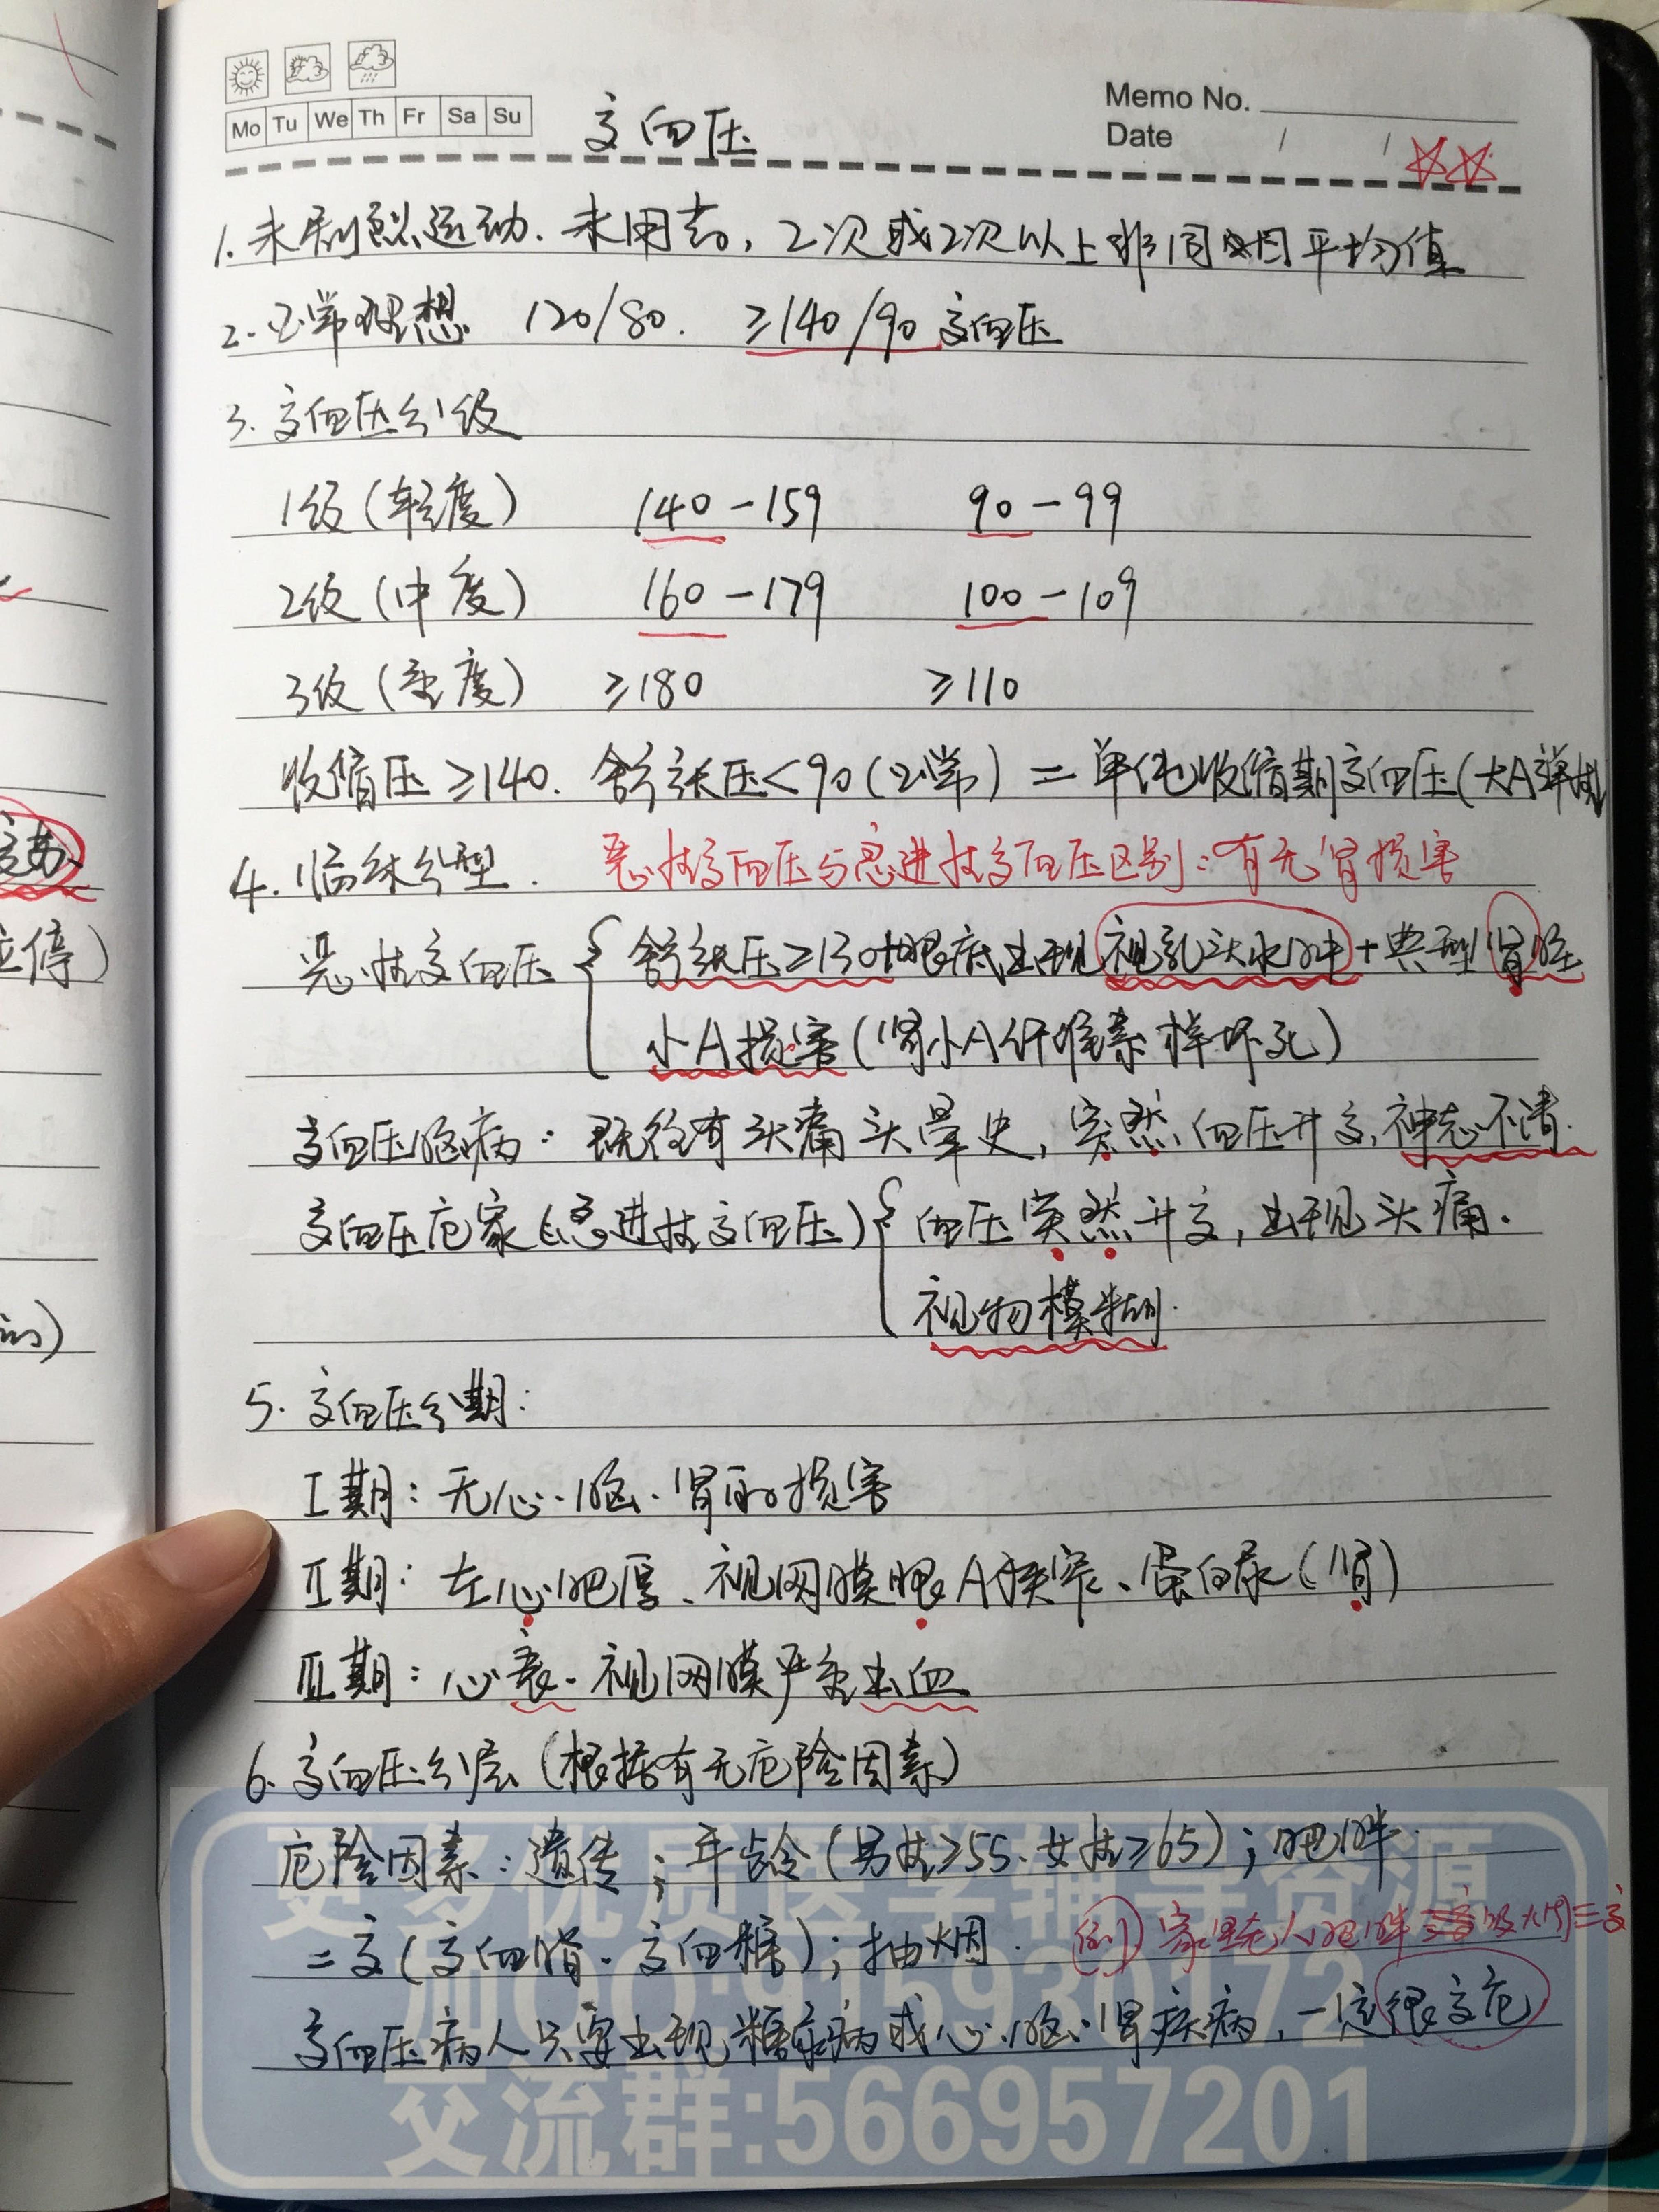 Mo Tu We Th Fr Sa Su
高血压
Memo No.
Date / /
1. 未剧烈运动、未用药，2次或2次以上非同日平均值
2. 正常理想 120/80. ≥140/90 高血压
3. 高血压分级
1级(轻度) 140-159 90-99
2级(中度) 160-179 100-109
3级(重度) ≥180 ≥110
收缩压≥140. 舒张压<90(正常) = 单纯收缩期高血压(大A弹
4. 临床分型. 恶性高血压与急进性高血压区别：有无肾损害
恶性高血压 { 舒张压≥130+眼底出现视乳头水肿+典型肾脏
小A损害(肾小A纤维素样坏死)
高血压脑病：既往有头痛头晕史，突然血压升高,神志不清.
高血压危象(急进性高血压) { 血压突然升高，出现头痛.
视物模糊.
5. 高血压分期：
Ⅰ期：无心、脑、肾的损害
Ⅱ期：左心肥厚、视网膜眼A狭窄、蛋白尿(肾)
Ⅲ期：心衰、视网膜严重出血
6. 高血压分层(根据有无危险因素)
危险因素：遗传；年龄(男性≥55、女性≥65)；肥胖
二高(高血脂、高血糖)；抽烟.
例) 家里老人肥胖 吸火因三高
高血压病人只要出现糖尿病或心、脑、肾疾病，一定很高危
更多优质医学辅导资源
加QQ:915930172
交流群:566957201
应停)